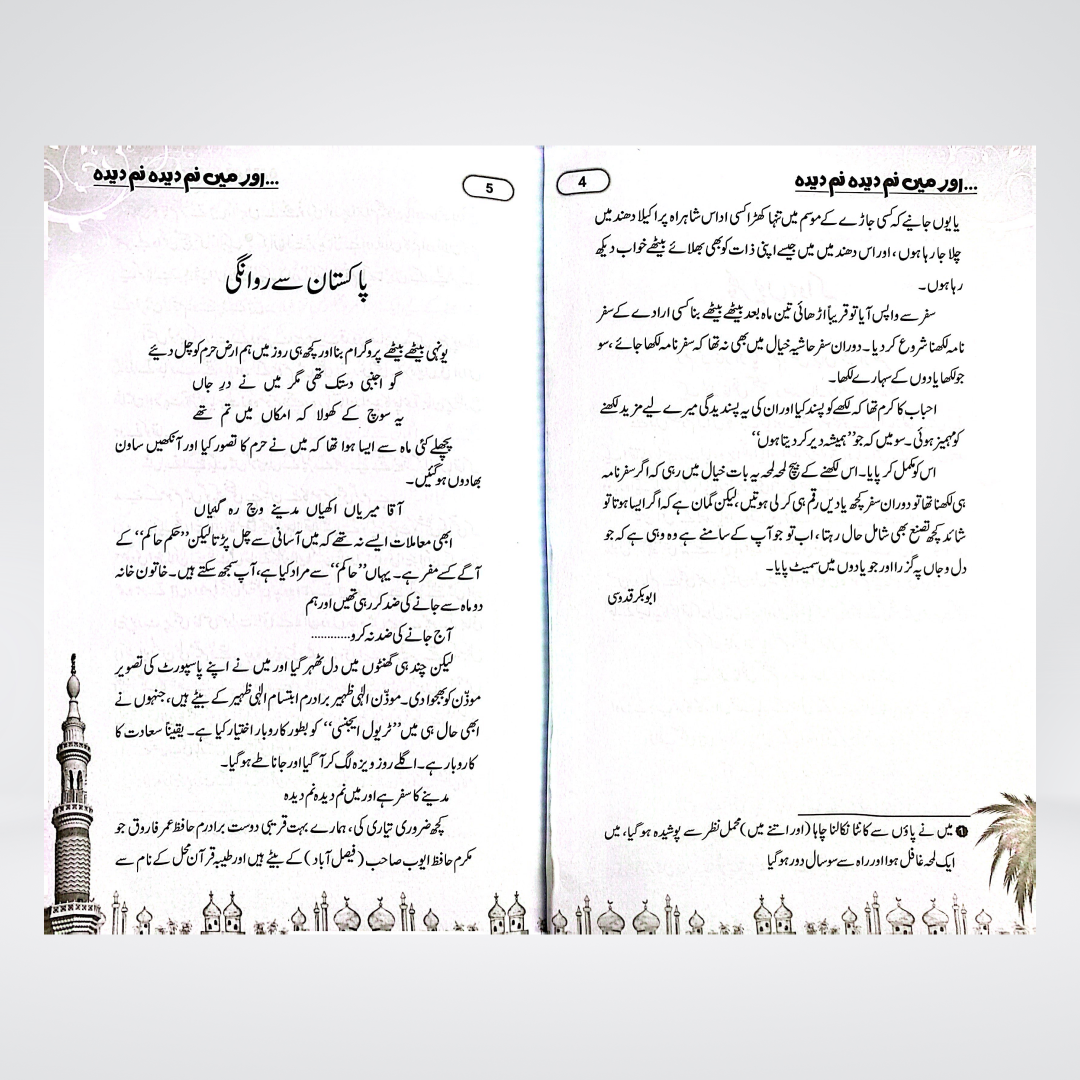 4
...اور میں نم دیدہ نم دیدہ
یا یوں جانیے کہ کسی جاڑے کے موسم میں تنہا کھڑا کسی اداس شاہراہ پر اکیلا دھند میں
چلا جا رہا ہوں، اور اس دھند میں میں جیسے اپنی ذات کو بھی بھلائے بیٹھے خواب دیکھ
رہا ہوں۔
سفر سے واپس آیا تو قریباً اڑھائی تین ماہ بعد بیٹھے بیٹھے بنا کسی ارادے کے سفر
نامہ لکھنا شروع کر دیا۔ دوران سفر حاشیہ خیال میں بھی نہ تھا کہ سفر نامہ لکھا جائے، سو
جو لکھا یادوں کے سہارے لکھا۔
احباب کا کرم تھا کہ لکھے کو پسند کیا اور ان کی یہ پسندیدگی میرے لیے مزید لکھنے
کو مہمیز ہوئی۔ سو میں کہ جو ’’ہمیشہ دیر کر دیتا ہوں‘‘
اس کو مکمل کر پایا۔ اس لکھنے کے بیچ لمحہ لمحہ یہ بات خیال میں رہی کہ اگر سفر نامہ
ہی لکھنا تھا تو دوران سفر کچھ یادیں رقم ہی کر لی ہوتیں، لیکن گمان ہے کہ اگر ایسا ہوتا تو
شائد کچھ تصنع بھی شامل حال رہتا، اب تو جو آپ کے سامنے ہے وہ وہی ہے کہ جو
دل و جاں پہ گزرا اور جو یادوں میں سمیٹ پایا۔
ابوبکر قدوسی
❶ میں نے پاؤں سے کانٹا نکالنا چاہا (اور اتنے میں) محمل نظر سے پوشیدہ ہو گیا، میں
ایک لمحہ غافل ہوا اور راہ سے سو سال دور ہو گیا
5
...اور میں نم دیدہ نم دیدہ
پاکستان سے روانگی
یونہی بیٹھے بیٹھے پروگرام بنا اور کچھ ہی روز میں ہم ارض حرم کو چل دیئے
گو اجنبی دستک تھی مگر میں نے درِ جاں
یہ سوچ کے کھولا کہ امکاں میں تم تھے
پچھلے کئی ماہ سے ایسا ہوا تھا کہ میں نے حرم کا تصور کیا اور آنکھیں ساون
بھادوں ہو گئیں۔
آقا میریاں اکھیاں مدینے وچ رہ گیاں
ابھی معاملات ایسے نہ تھے کہ میں آسانی سے چل پڑتا لیکن ’’حکم حاکم‘‘ کے
آگے کسے مفر ہے۔ یہاں ’’حاکم‘‘ سے مراد کیا ہے، آپ سمجھ سکتے ہیں۔ خاتون خانہ
دو ماہ سے جانے کی ضد کر رہی تھیں اور ہم
آج جانے کی ضد نہ کرو............
لیکن چند ہی گھنٹوں میں دل ٹھہر گیا اور میں نے اپنے پاسپورٹ کی تصویر
موذّن کو بھجوا دی۔ موذّن الٰہی ظہیر برادرم ابتسام الٰہی ظہیر کے بیٹے ہیں، جنہوں نے
ابھی حال ہی میں ’’ٹریول ایجنسی‘‘ کو بطور کاروبار اختیار کیا ہے۔ یقیناً سعادت کا
کاروبار ہے۔ اگلے روز ویزہ لگ کر آ گیا اور جانا طے ہو گیا۔
مدینے کا سفر ہے اور میں نم دیدہ نم دیدہ
کچھ ضروری تیاری کی، ہمارے بہت قریبی دوست برادرم حافظ عمر فاروق جو
مکرم حافظ ایوب صاحب (فیصل آباد) کے بیٹے ہیں اور طیبہ قرآن محل کے نام سے